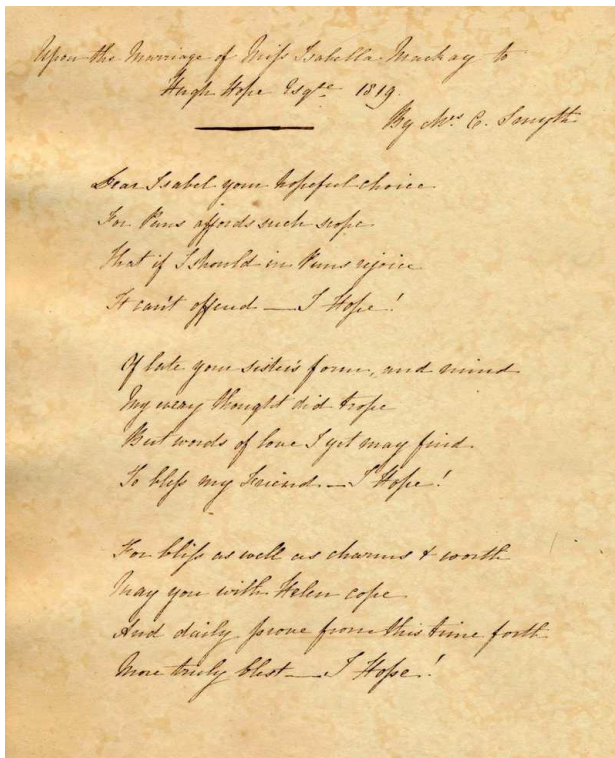 Upon the Marriage of Miss Isabella Mackay to
Hugh Hope Esqre 1819.
By Mrs C. Smyth
Dear Isabel your hopeful choice
For Puns affords such scope
That if I should in Puns rejoice
It can't offend — I Hope!
Of late your sister's form, and mind
My every thought did trope
But words of love I yet may find
To bless my Friend — I Hope!
For bliss as well as charms & worth
May you with Helen cope
And daily prove from this time forth
More truly blest — I Hope!